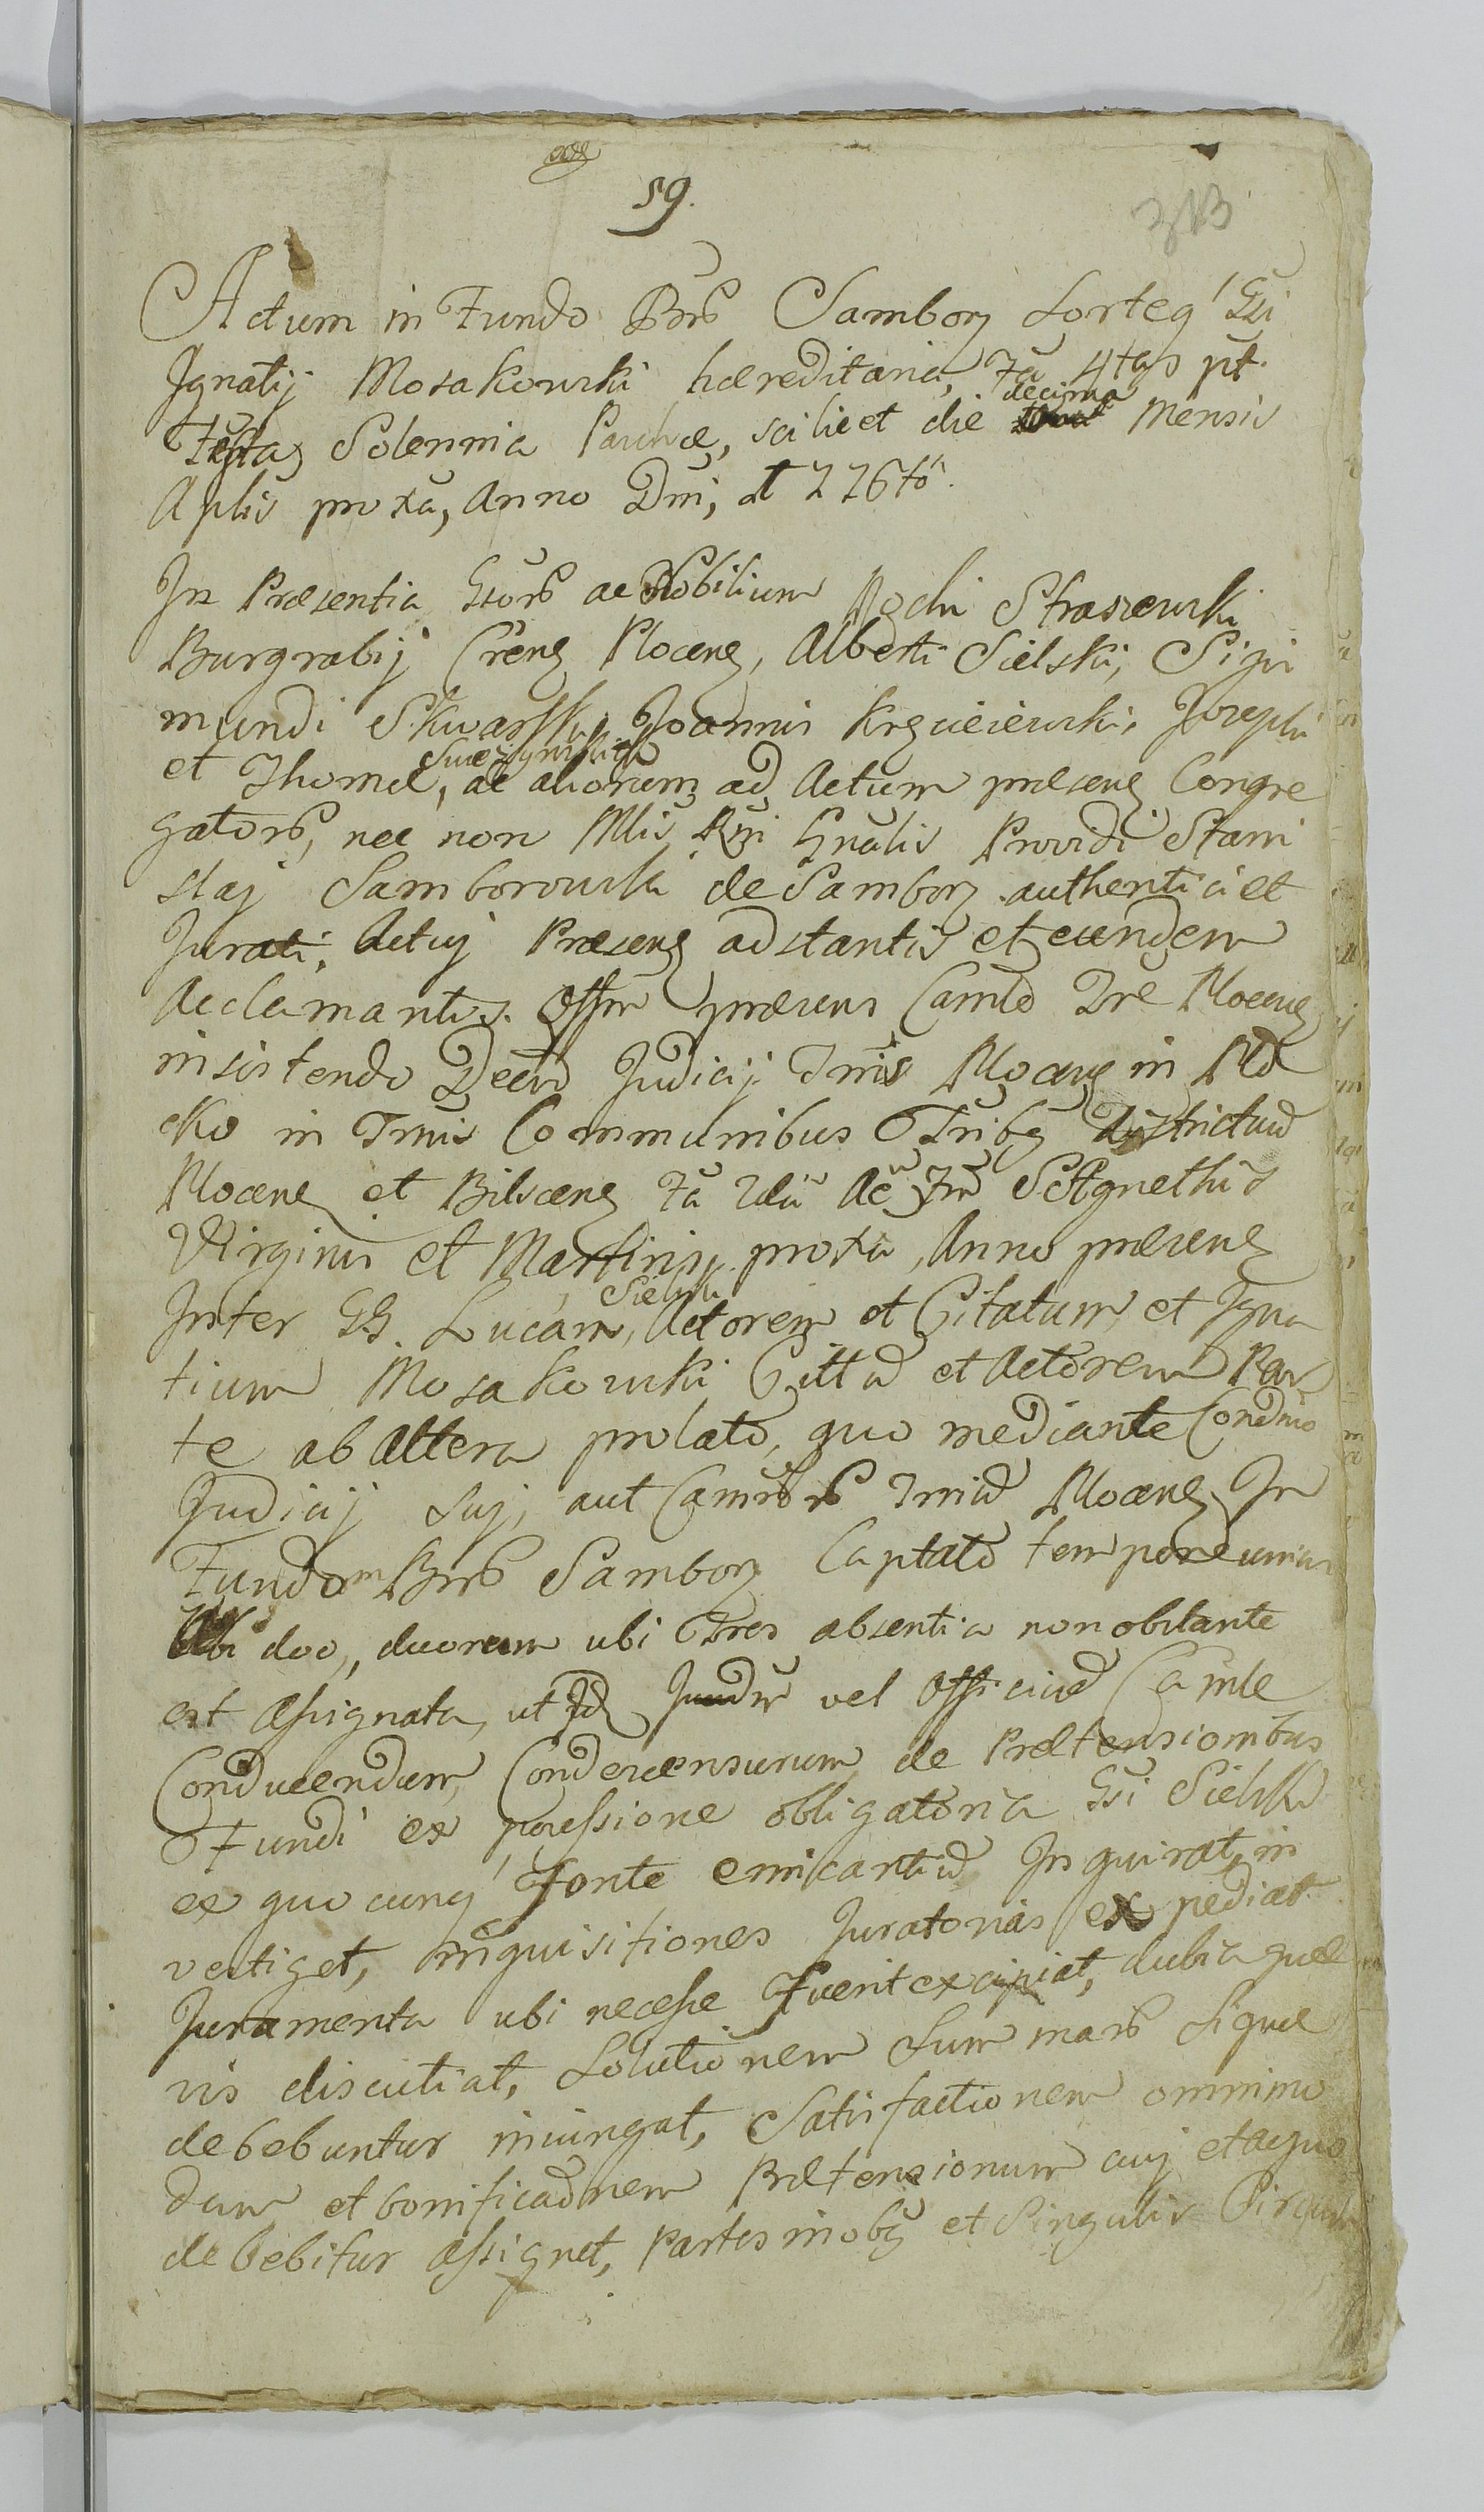 59.
313
Actum in Fundo Bnrō Sambory Sorteq' Gsi
Ignatij Mosakowski haereditaria, Fa 4ta p̃t.
Festa Solennia Paschae, scilicet die decima Mensis
Aplis proxa, Anno Dni, 1776to.
In Praesentia Gsorō ac Nobilium Rochi Straszewski
Burgrabij Crens Plocens, Alberti Sielski, Sigis
mundi Skwarski, Joannis Krzyciewski, Josephi
et Thomae, ac aliorum ad Actum praesens Congre
gatorō, nec non Mlis Rgi Gnalis Providi Stani
slaj Samborowski de Sambory authentici et
Jurati, Actuj Praesens adstantis et eundem
acclamantis. Offm praesens Camle Tre Plocens
insistendo Decto Judicij Tnis Plocens in Pło
cko in Tnis Communibus Tribs Districtuum
Plocens et Bilscens Fa 2da Fm S Agnethis
Virginis et Martiris proxa, Anno praesens
Inter GG. Lucam Sielski, Actorem et Citatum, et Igna
tium Mosakowski Citt et Actorem Par
te ab altera prolato, quo mediante Condno
Judicij Suj, aut Camrorō Tnis Plocens In
Fundom Bnrō Sambory Captato tempore unius
doo, duorum ubi Tres absentia non obstante
est assignata, ut Id Judm vel Officium Camle
Conducendum, Condescensurum de Praetensionibus
Fundi ex possessione obligatoria Gsi Sielski
ex quocunq' Fonte emicantis Inquirat, in
vestiget, inquisitiones Juratorias expediat
Juramenta ubi necesse Fuerit excipiat, dubia quae
vis discutiat, Solutionem Summarō Si quae
debebuntur iniungat, Satisfactionem omnimo
dam et bonificaonem Praetensionum cuj et a quo
debebitur assignet, partes in obs et Singulis